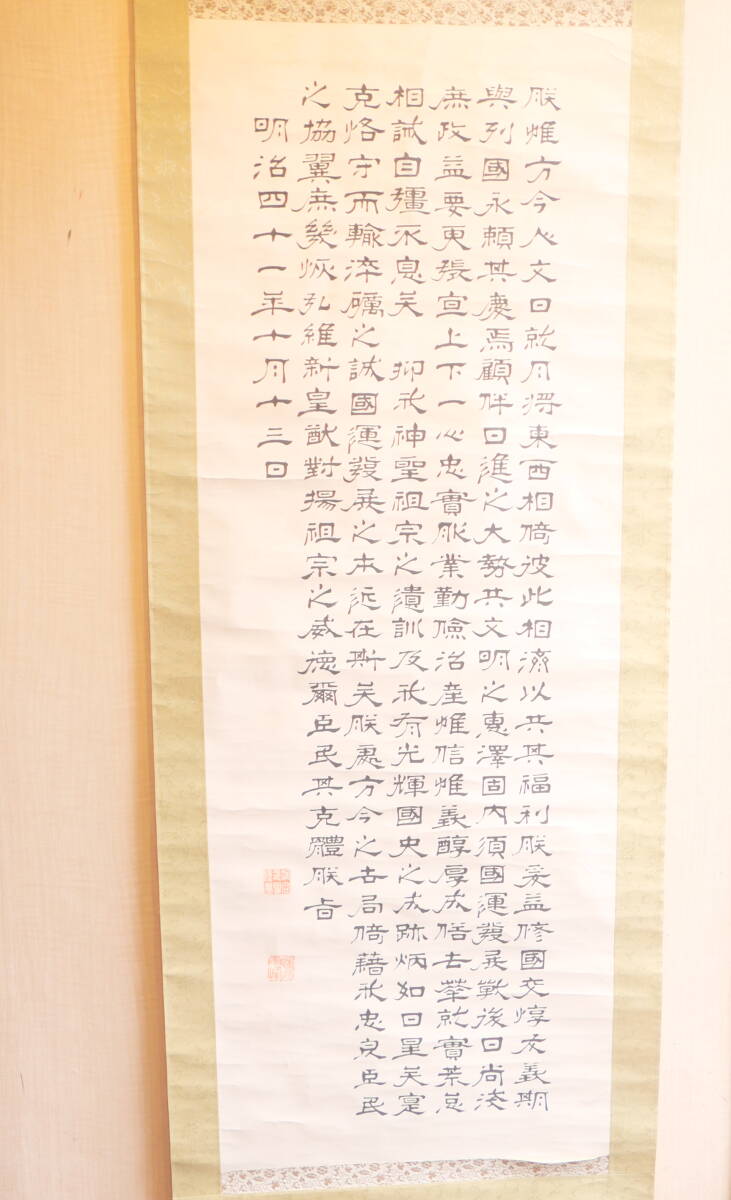 朕惟方今人文日就月將東西相倚彼此相濟以共其福利朕爰益修國交惇友義期
與列國永頼其慶焉顧伴日進之大勢共文明之惠澤固内須國運發展戰後日尚淺
庶政益要更張宣上下一心忠實服業勤儉治産惟信惟義醇厚成俗去華就實荒怠
相誡自彊不息矣　抑我神聖祖宗之遺訓及我有光輝國史之成跡炳如日星矣寔
克恪守而輸淬礪之誠國運發展之本近在斯矣朕處方今之世局倚藉我忠良臣民
之協翼庶幾恢弘維新皇猷對揚祖宗之威德爾臣民其克體朕旨
明治四十一年十月十三日